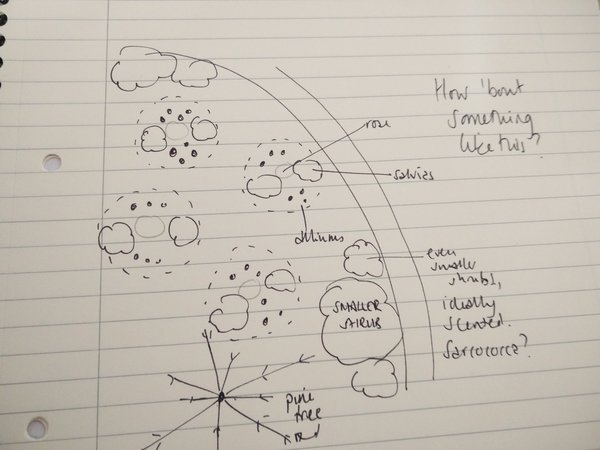 How 'bout
something
like this?
rose
salvias
alliums
even
smaller
shrubs,
ideally
scented.
Sarcococca?
SMALLER
SHRUB
pine
tree